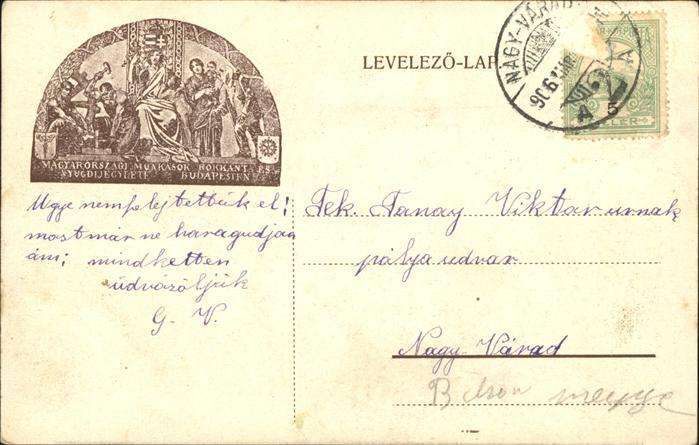 LEVELEZŐ-LAP
NAGY-VÁRAD
906
MAGYARORSZÁGI MUNKÁSOK ROKKANT ÉS
NYUGDIJEGYLETE BUDAPESTEN
Ugye nem felejtettük el!
most már ne haragudjon
ám; mindketten
üdvözöljük
G. V.
Tek. Tanay Viktor urnak
pályaudvar
Nagy Várad
megye